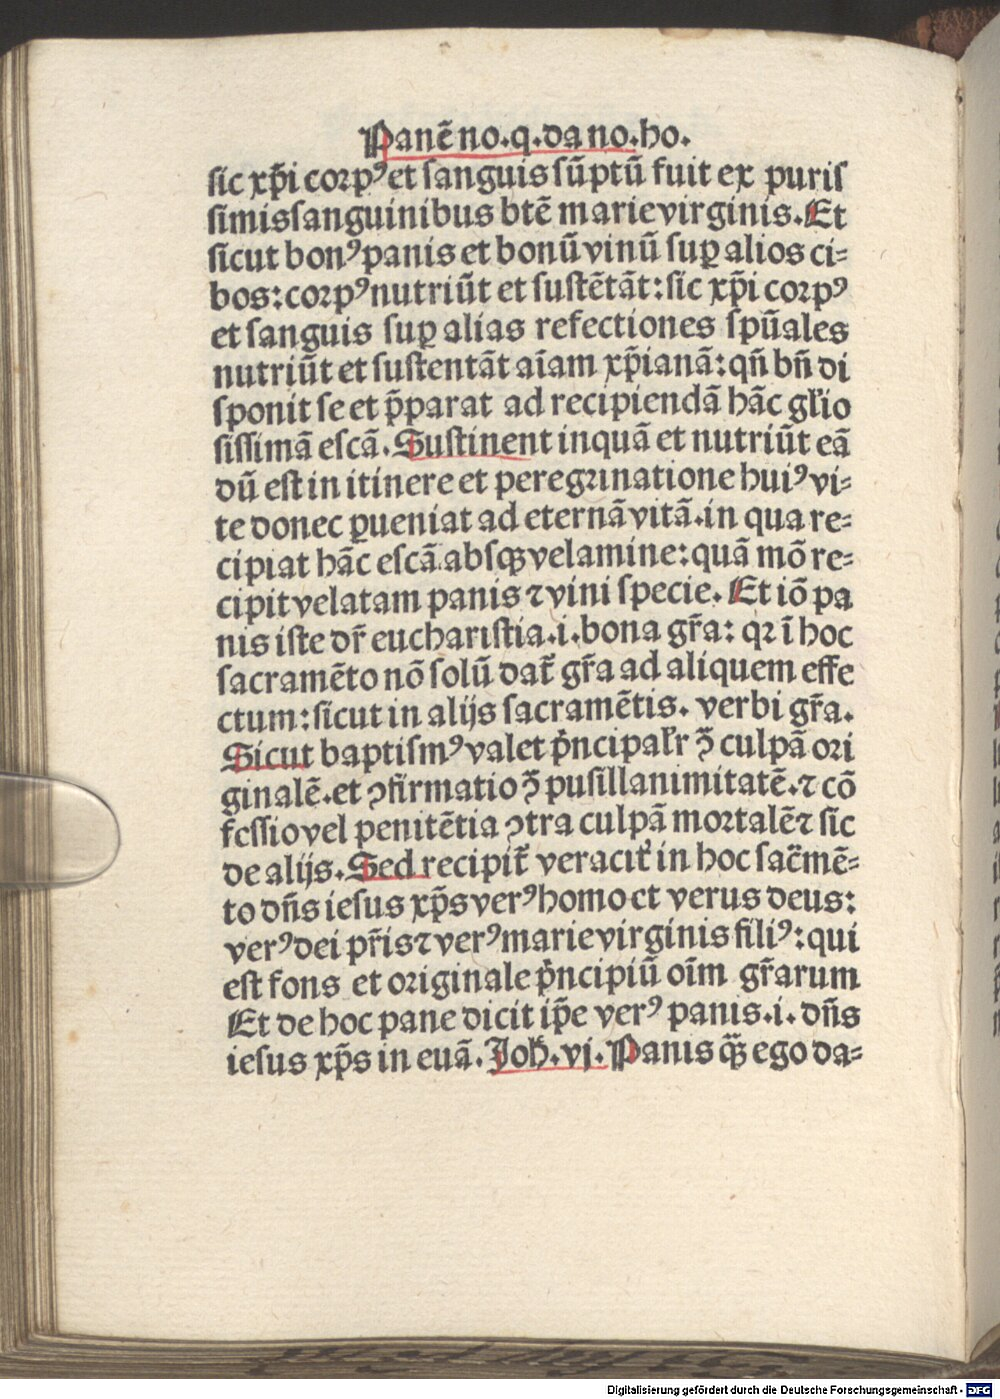 Panē no.q.da no.ho.
sic xp̄i corpꝰ et sanguis sūptū fuit ex puris
simis sanguinibus btē marie virginis. Et
sicut bonꝰ panis et bonū vinū suꝑ alios ci⸗
bos: corpꝰ nutriūt et sustētāt: sic xp̄i corpꝰ
et sanguis suꝑ alias refectiones spūales
nutriūt et sustentāt aīam xp̄ianā: qn̄ bn̄ di
sponit se et p̄parat ad recipiendā hāc gl'io
sissimā escā. Sustinent inquā et nutriūt eā
dū est in itinere et peregrinatione huiꝰ vi⸗
te donec ꝑueniat ad eternā vitā.in qua re⸗
cipiat hāc escā absqꝫ velamine: quā mō re⸗
cipit velatam panis ⁊ vini specie. Et iō pa
nis iste dr̄ eucharistia.i.bona gr̄a: qꝛ ī hoc
sacramēto nō solū dat᷑ gr̄a ad aliquem effe
ctum: sicut in alijs sacramētis. verbi gr̄a.
Sicut baptismꝰ valet p̄ncipalr̄ ↄ̄ culpā ori
ginalē.et ↄfirmatio ↄ̄ pusillanimitatē.⁊ cō
fessio vel penitētia ↄtra culpā mortalē ⁊ sic
de alijs. Sed recipit᷑ veracit᷑ in hoc sac̄mē⸗
to dn̄s iesus xp̄s verꝰ homo et verus deus:
verꝰ dei pr̄is ⁊ verꝰ marie virginis filiꝰ: qui
est fons et originale p̄ncipiū oīm gr̄arum
Et de hoc pane dicit ip̄e verꝰ panis.i. dn̄s
iesus xp̄s in euā. Joh̄.vj. Panis quē ego da⸗
Digitalisierung gefördert durch die Deutsche Forschungsgemeinschaft - DFG